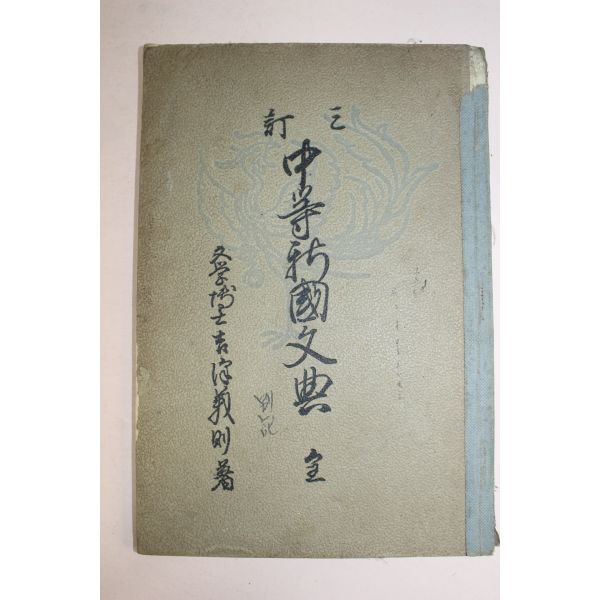 三訂
中等新國文典 全
文學博士吉澤義則著